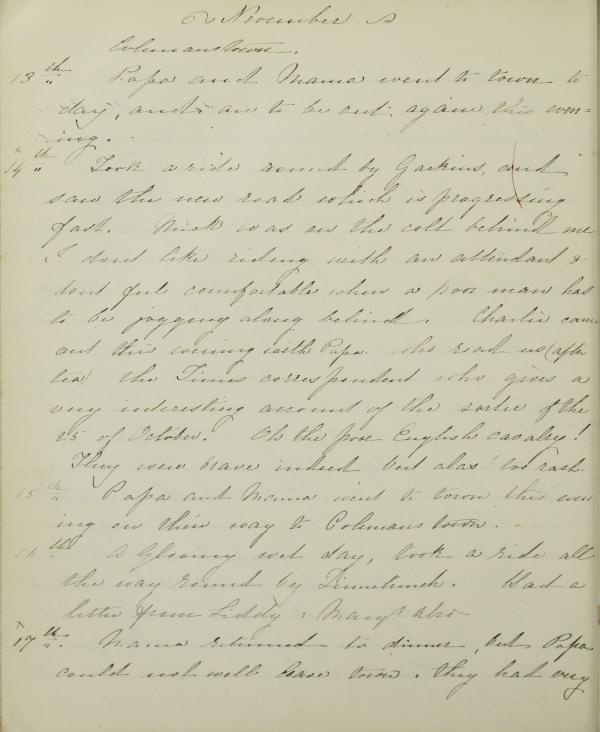 November
Colemanstown.
13th " Papa and Mama went to town to
day, and are to be out again this even=
ing.
x 14th " Took a ride around by Gaskins, and
saw the new road which is progressing
fast. Mick was on the colt behind me
I dont like riding with an attendant &
dont feel comfortable when a poor man has
to be jogging along behind. Charlie came
out this evening with Papa who read us (after
tea) the Times correspondent who gives a
very interesting account of the sortie of the
25 of October. Oh the poor English cavalry!
They were brave indeed but alas! too rash.
15th " Papa and Mama went to town this even
ing on their way to Colemanstown.
16th A Gloomy wet day, took a ride all
the way round by. Had a
letter from Liddy, Mary also
x 17th ". Mama returned to dinner, but Papa
could not well leave town. they had very